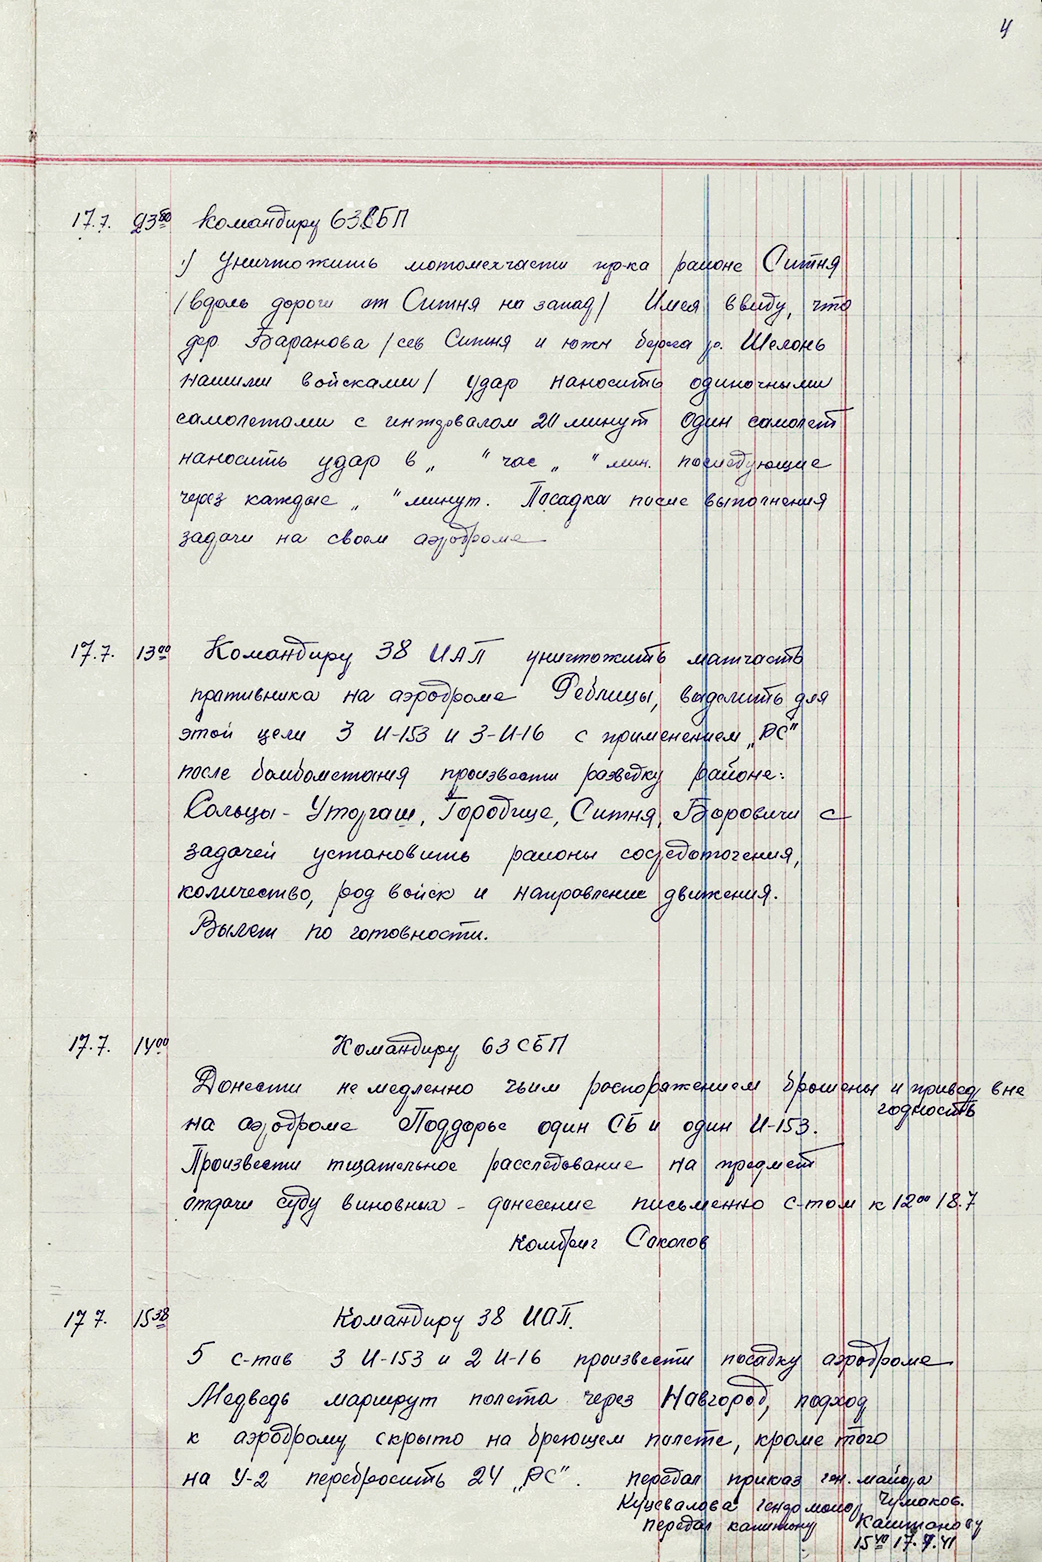 4
17.7. 23 50 Командиру 63 СБП
1/ Уничтожить мотомехчасти пр-ка районе Ситня
/вдоль дороги от Ситня на запад/ Имея ввиду, что
дер Баранова /сев Ситня и южн берега р. Шелонь
нашими войсками/ удар наносить одиночными
самолетами с интервалом 20 минут один самолет
наносить удар в „ “ час „ “ мин. последующие
через каждые „ “ минут. Посадка после выполнения
задачи на своем аэродроме
17.7. 13 00 Командиру 38 ИАП уничтожить матчасть
противника на аэродроме Реблицы, выделить для
этой цели 3 И-153 и 3-И-16 с применением „РС“
после бомбометания произвести разведку районе:
Сольцы - Уторгаш, Городище, Ситня, Боровичи с
задачей установить районы сосредоточения,
количество, род войск и направление движения.
Вылет по готовности.
17.7. 14 00 Командиру 63 СБП
Донести немедленно чьим распоряжением брошены и привед вне
годность
на аэродроме Поддорье один СБ и один И-153.
Произвести тщательное расследование на предмет
отдачи суду виновных - донесение письменно с-том к 12 00 18.7
Комбриг Соколов
17 7. 15 38 Командиру 38 ИАП.
5 с-тов 3 И-153 и 2 И-16 произвести посадку аэродроме
Медведь маршрут полета через Новгород, подход
к аэродрому скрыто на бреющем полете, кроме того
на У-2 перебросить 24 „РС“. передал приказ ген. майора
Куцевалова Чумаков.
передал капитану Каштанову
15 40 17.7.41